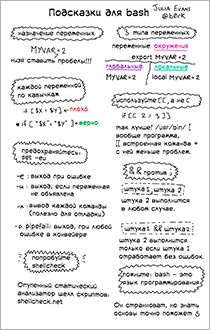 Подсказки для bash
JULIA EVANS
@b0rk
назначение переменных
MYVAR=2
низя ставить пробелы!!!
каждой переменной
по кавычкам
плохо
верно
предохраняйтесь:
set -eu
-e : выход при ошибке
-u : выход, если переменная
не объявлена
-x : вывод каждой команды
(полезно для отладки)
-o pipefail: выход, при любой
ошибке в конвейере
попробуйте
shellcheck
Отличный статический
анализатор шелл скриптов:
shellcheck.net
3 типа переменных
переменные окружения
export MYVAR=2
глобальные
локальные
MYVAR=2
local MYVAR=2
используйте [[, а не [
так лучше! /usr/bin/[
вообще программа,
[[ встроенная команда +
с ней меньше проблем.
&& против ;
штука1; штука2
штука 2 выполнится
в любом случае.
штука1 && штука2
штука 2 выполнится
только если штука 1
отработает без ошибок.
помните: bash - это
язык программирования
Он странноват, но знать
основы точно поможет